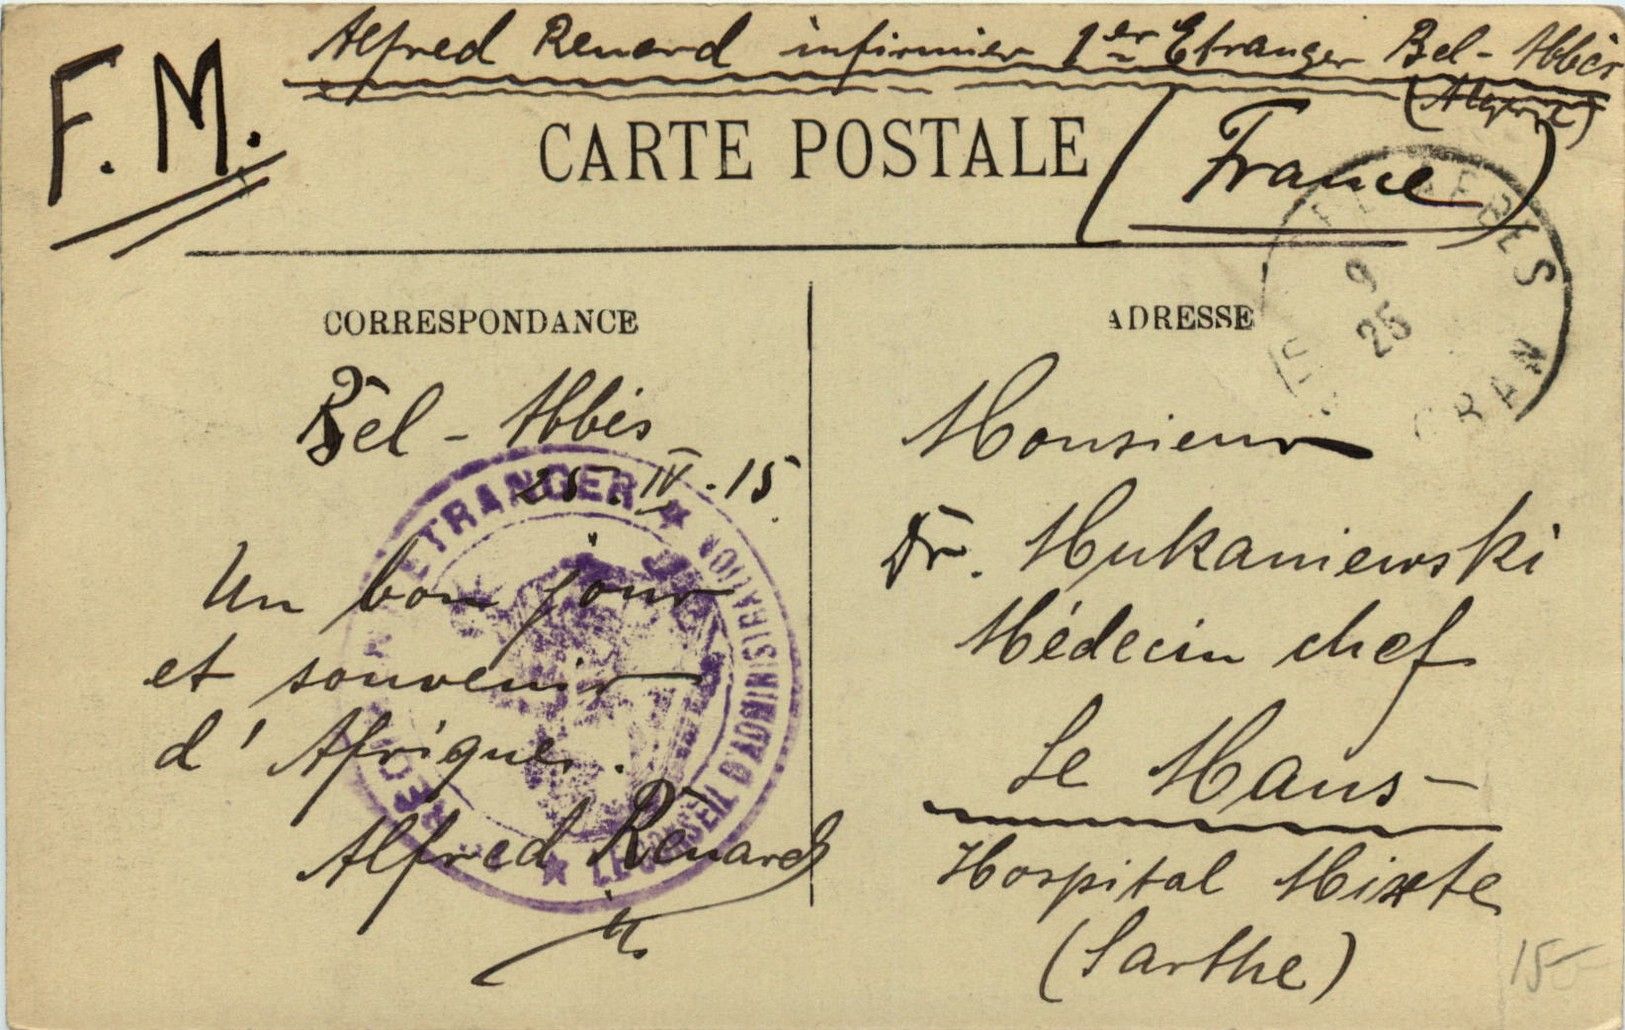 F.M.
Alfred Renard infirmier 1er Etranger Bel-Abbès
(Algérie)
CARTE POSTALE
(France)
CORRESPONDANCE
Bel-Abbès
25.IV.15
Un bon jour
et souvenir
d'Afrique.
Alfred Renard
ETRANGER ★
LE CONSEIL D'ADMINISTRATION
ADRESSE
9
25
ORAN
Monsieur
Dr. Mukaniewski
Médecin chef
Le Mans
Hospital Mixte
(Sarthe)
15